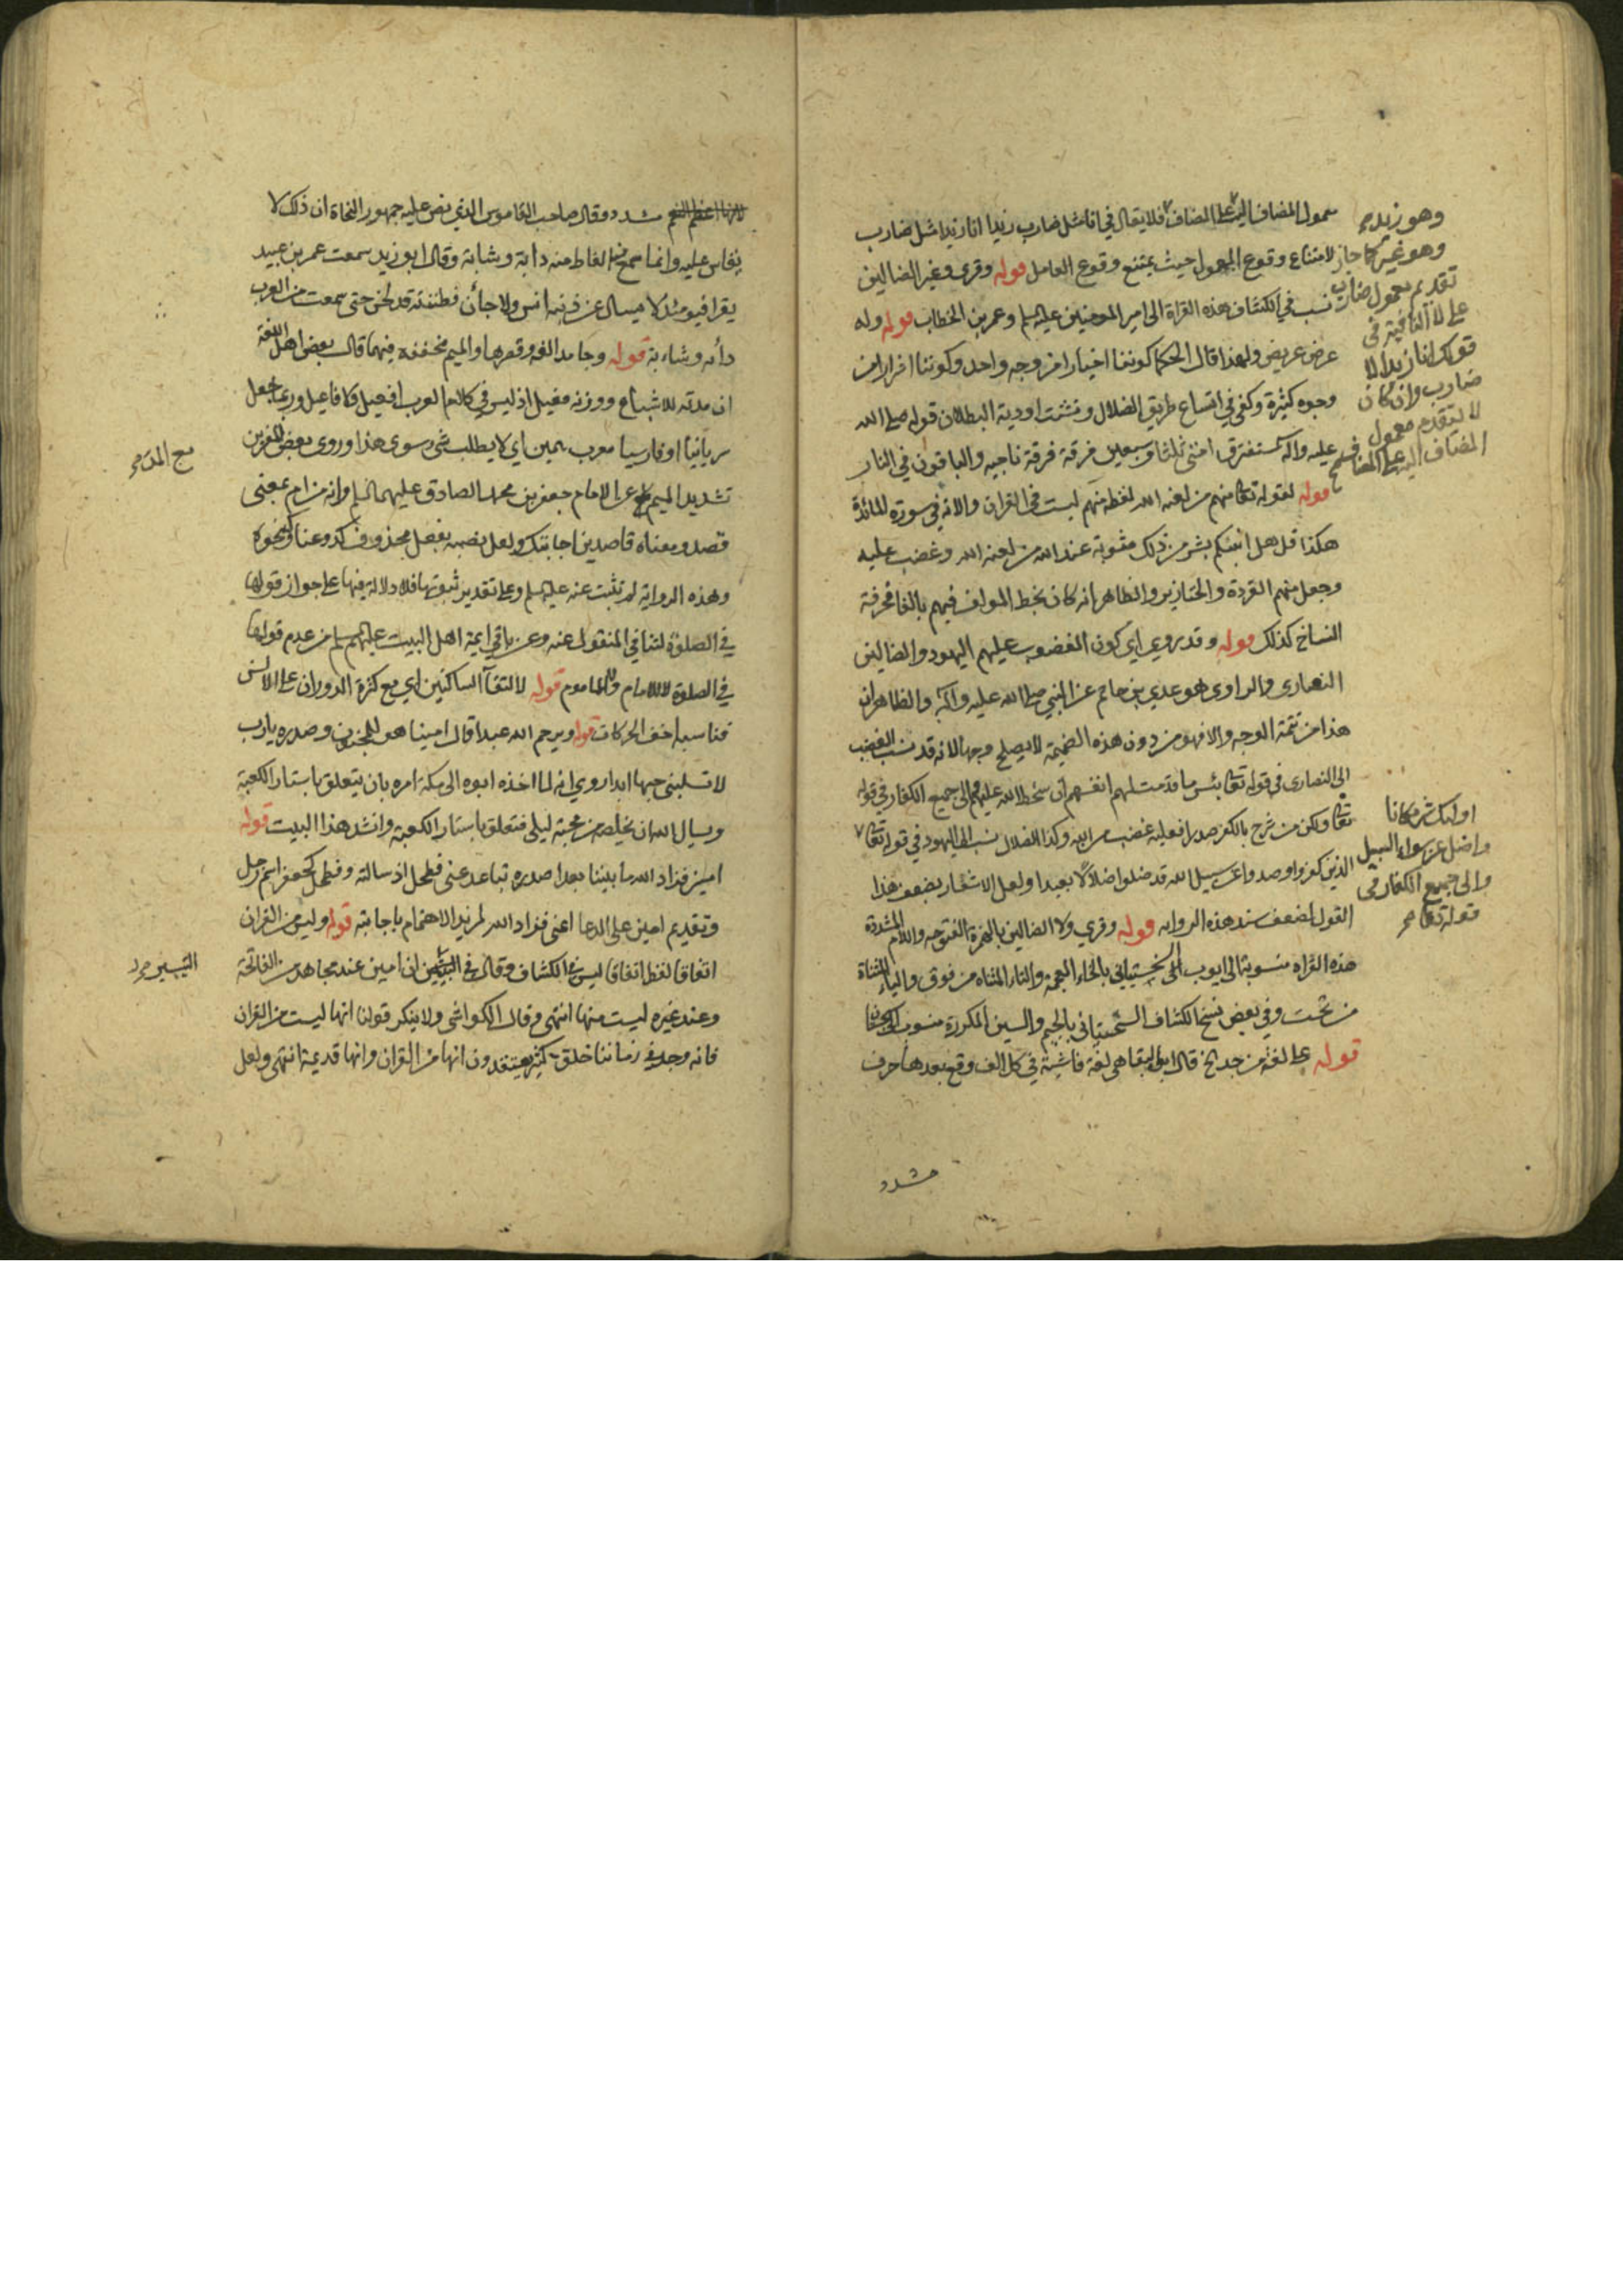 معمول المضاف اليه على المضاف فلا يقال في انا مثل ضارب زيدا انا زيدا مثل ضارب
لامتناع وقوع المعمول حيث يمتنع وقوع العامل قوله وقرى وغير الضالين
نسب في الكشاف هذه القراة الى امير المومنين عليه السلم وعمر بن الخطاب قوله وله
عرض عريض ولهذا قال الحكما كوننا اخيارا من وجه واحد وكوننا اشرارا من
وجوه كثيرة وكفى في اتساع طريق الضلال وتشتت اودية البطلان قوله صلى الله
عليه واله ستفترق امتي ثلثا وسبعين فرقة فرقة ناجيه والباقون في النار
قوله لقوله تعا منهم من لعنه الله لفظه منهم ليست في القران والاية في سورة المائدة
هكذا قل هل انبئكم بشر من ذلك مثوبة عند الله من لعنه الله وغضب عليه
وجعل منهم القردة والخنازير والظاهر انه كان بخط المولف فيهم بالفا فحرفة
النساخ كذلك قوله وقد روي اي كون المغضوب عليهم اليهود والضالين
النصارى والراوى هو عدي بن حاتم عن النبي صلى الله عليه واله والظاهر ان
هذا من تتمة الوجه والا فهو من دون هذه الضميمة لا يصلح وجها لانه قد نسب الغضب
الى النصارى في قوله تعا بئس ما قدمت لهم انفسهم ان سخط الله عليهم والى جميع الكفار في قوله
تعا ولكن من شرح بالكفر صدرا فعليه غضب من الله وكذا الضلال نسب الى اليهود في قوله تعا
الذين كفروا وصدوا عن سبيل الله قد ضلوا ضلالا بعيدا ولعل الاشعار بضعف هذا
القول لضعف سند هذه الروايه قوله وقري ولا الضالين بالهمزة المفتوحه واللام المشددة
هذه القراه منسوبة الى ايوب السختياني بالخاء المعجمة والتاء المثناه من فوق والياء المثناة
من تحت وفي بعض نسخ الكشاف بالجيم والسين المكررة منسوب الى
قوله على لغة من جد الخ قال ابو البقا هي لغة فاشية في كل الف وقع بعدها حرف
مشدد
وهو زيد
وهو غير كما جاز
تقديم معمول ضارب
على لا النافية في
قولك انا زيدا لا
ضارب وان كان
لا يتقدم معمول
المضاف اليه على المضاف صح
اولئك شر مكانا
واضل عن سواء السبيل
والى جميع الكفار في
قوله تعا
مشدد وقال صاحب القاموس الذي نص عليه جمهور النحاة ان ذلك لا
يقاس عليه وانما سمع منه الفاظ منه دابة وشابة وقال ابو زيد سمعت عمر بن عبيد
يقرا فيومئذ لا يسال عن ذنبه انس ولا جأن فظننته قد لحن حتى سمعت من العرب
دأبه وشابة قوله وجا مد الفه وقصرها والميم مخففه فيهما قال بعض اهل اللغة
ان مدته للاشباع ووزنه فعيل اذ ليس في كلام العرب افعيل ولا فاعيل وربما جعل
سريانيا او فارسيا معرب همين اي لا يطلب شي سوى هذا وروى بعض المفسرين
تشديد الميم عن الامام جعفر بن محمد الصادق عليهما السلم وانه من ام بمعنى
قصد ومعناه قاصدين اجابتك ولعل نصبه بفعل محذوف كدعونا ونحوه
وهذه الرواية لم تثبت عنه عليه السلم وعلى تقدير ثبوتها فلا دلالة فيها على جواز قولها
في الصلوة لتنافي المنقول عنه وعن باقي ايمة اهل البيت عليهم السلم من عدم قولها
في الصلوة للامام والماموم قوله لالتقآ الساكنين اي مع كثرة الدوران على الالسن
فناسبها اخف الحركات قوله ويرحم الله عبدا قال امينا هو للمجنون وصدره يا رب
لا تسلبني حبها ابدا روي انه لما اخذه ابوه الى مكة امره بان يتعلق باستار الكعبة
ويسال الله ان يخلصه من محبة ليلى فتعلق باستار الكعبة وانشد هذا البيت قوله
امين فزاد الله ما بيننا بعدا صدره تباعد عني فطحل اذ سالته وفطحل كجعفر اسم رجل
وتقديم امين على الدعا اعني فزاد الله لمزيد الاهتمام باجابته قوله وليس من القران
اتفاقا لفظ اتفاقا ليس في الكشاف وقال في ان امين عند مجاهد من الفاتحة
وعند غيره ليست منها انتهى وقال الكواشي ولا ينكر قولنا انها ليست من القران
فانه وجد في زماننا خلق كثير يعتقدون انها من القران وانها قديمة انتهى ولعل
مع المد
التيسير